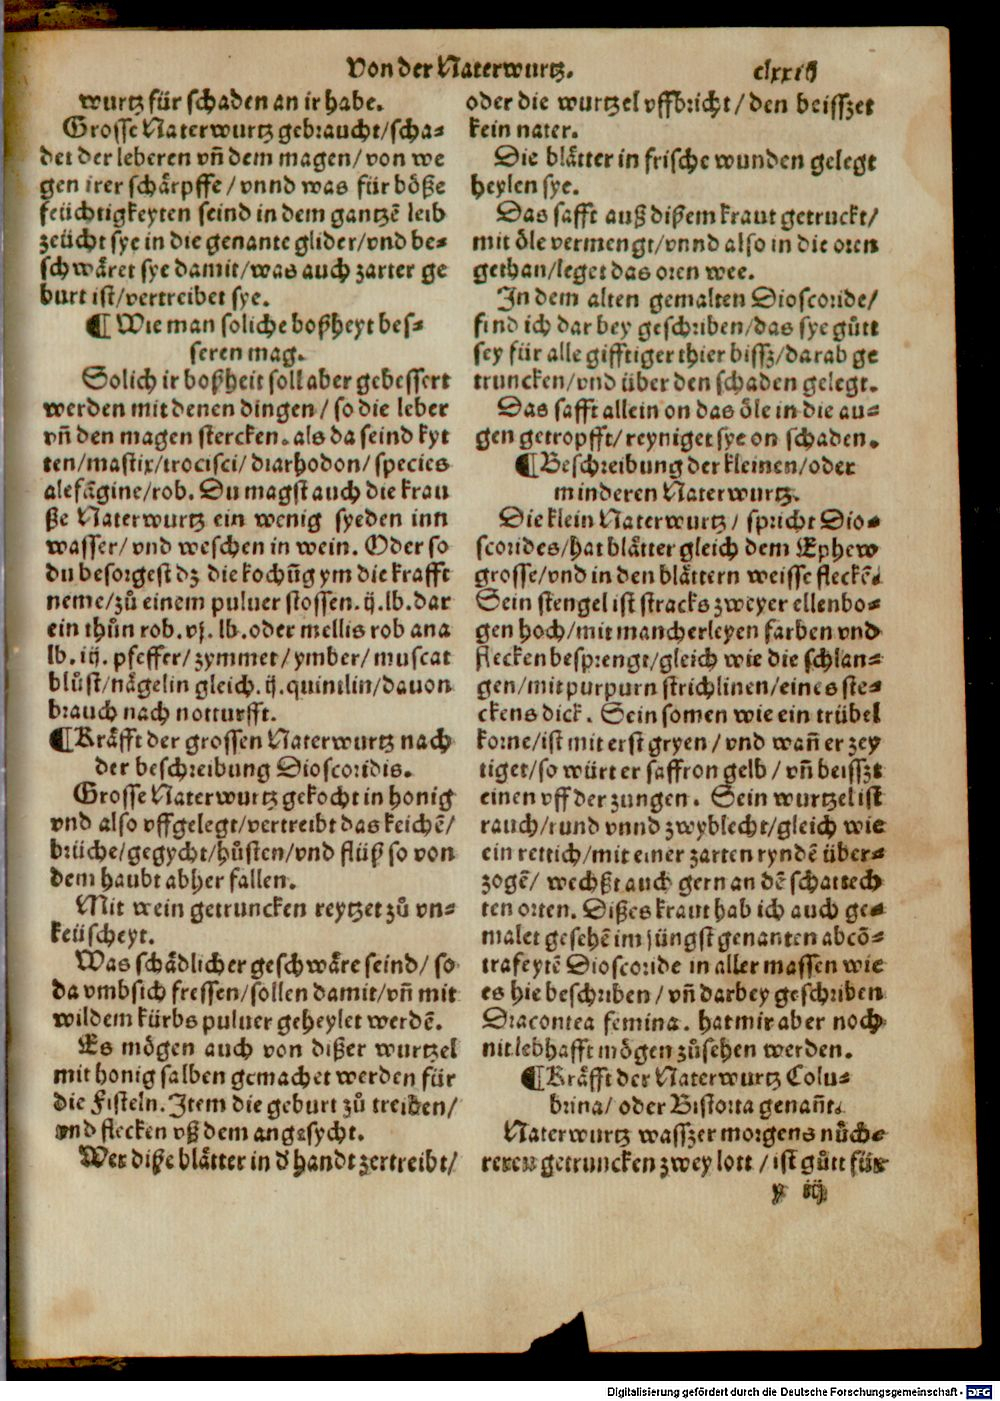 Von der Naterwurtz. clxxiij
wurtz für schaden an ir habe.
Grosse Naterwurtz gebraucht/scha-
det der leberen vñ dem magen/von we
gen irer schärpffe/vnnd was für böße
feüchtigkeyten seind in dem gantzē leib
zeücht sye in die genante glider/vnd be-
schwäret sye damit/was auch zarter ge
burt ist/vertreibet sye.
¶ Wie man soliche boßheyt bes-
seren mag.
Solich ir boßheit soll aber gebessert
werden mit denen dingen/ so die leber
vñ den magen stercken. als da seind kyt
ten/mastix/trocisci/diarhodon/species
alefāgine/rob. Du magst auch die krau
ße Naterwurtz ein wenig syeden inn
wasser/vnd weschen in wein. Oder so
du besorgest dz die kochūg ym die krafft
neme/zů einem puluer stossen. ij. lb. dar
ein thůn rob. vj. lb. oder mellis rob ana
lb. iij. pfeffer/zymmet/ymber/muscat
blůst/nägelin gleich. ij. quintlin/dauon
brauch nach notturfft.
¶Kräfft der grossen Naterwurtz nach
der beschreibung Dioscoridis.
Grosse Naterwurtz gekocht in honig
vnd also vffgelegt/vertreibt das keichē/
brüche/gegycht/hůsten/vnd flüß so von
dem haubt abher fallen.
Mit wein getruncken reytzet zů vn-
keüscheyt.
Was schädlicher geschwäre seind/ so
da vmbsich fressen/sollen damit/vñ mit
wildem kürbs puluer geheylet werdē.
Es mögen auch von dißer wurtzel
mit honig salben gemachet werden für
die Fisteln. Item die geburt zů treiben/
vnd flecken vß dem angesycht.
Wer diße blätter in d' handt zertreibt/
oder die wurtzel vffbricht/den beisszet
kein nater.
Die blätter in frische wunden gelegt
heylen sye.
Das safft auß dißem kraut getruckt/
mit öle vermengt/vnnd also in die oren
gethan/leget das oren wee.
In dem alten gemalten Dioscoride/
find ich dar bey geschriben/das sye gůtt
sey für alle gifftiger thier bissz/darab ge
truncken/vnd über den schaden gelegt.
Das safft allein on das öle in die au-
gen getropfft/reyniget sye on schaden.
¶Beschreibung der kleinen/oder
minderen Naterwurtz.
Die klein Naterwurtz/ spricht Dio-
scorides/hat blätter gleich dem Ephew
grosse/vnd in den blättern weisse fleckē.
Sein stengel ist stracks zweyer ellenbo-
gen hoch/mit mancherleyen farben vnd
flecken besprengt/gleich wie die schlan-
gen/mit purpurn strichlinen/eines ste-
ckens dick. Sein somen wie ein trübel
korne/ist mit erst gryen/vnd wañ er zey
tiget/so würt er saffron gelb/vñ beisszt
einen vff der zungen. Sein wurtzel ist
rauch/rund vnnd zwyblecht/gleich wie
ein rettich/mit einer zarten ryndē über-
zogē/ wechßt auch gern an dē schattech
ten orten. Dißes kraut hab ich auch ge-
malet gesehē im jüngst genanten abcō-
trafeytē Dioscoride in aller massen wie
es hie beschriben/vñ darbey geschriben
Dracontea femina. hat mir aber noch
nit lebhafft mögen zůsehen werden.
¶Kräfft der Naterwurtz Colu-
brina/ oder Bistorta genañt.
Naterwurtz wasszer morgens nůch-
teren getruncken zwey lott/ist gůtt für
y iij
Digitalisierung gefördert durch die Deutsche Forschungsgemeinschaft - DFG